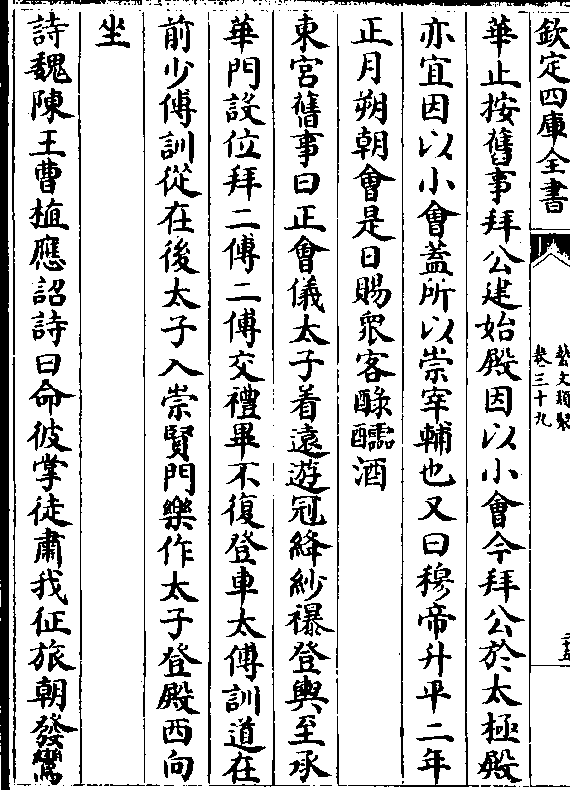 欽定四庫全書
藝文類聚
卷三十九
華止按舊事拜公建始殿因以小會今拜公於太極殿
亦宜因以小會蓋所以崇宰輔也又曰穆帝升平二年
正月朔朝會是日賜衆客醁醽酒
東宮舊事曰正會儀太子着遠遊冠絳紗襮登輿至承
華門設位拜二傅二傅交禮畢不復登車太傅訓道在
前少傅訓從在後太子入崇賢門樂作太子登殿西向
坐
詩魏陳王曹植應詔詩曰命彼掌徒肅我征旅朝發鸞